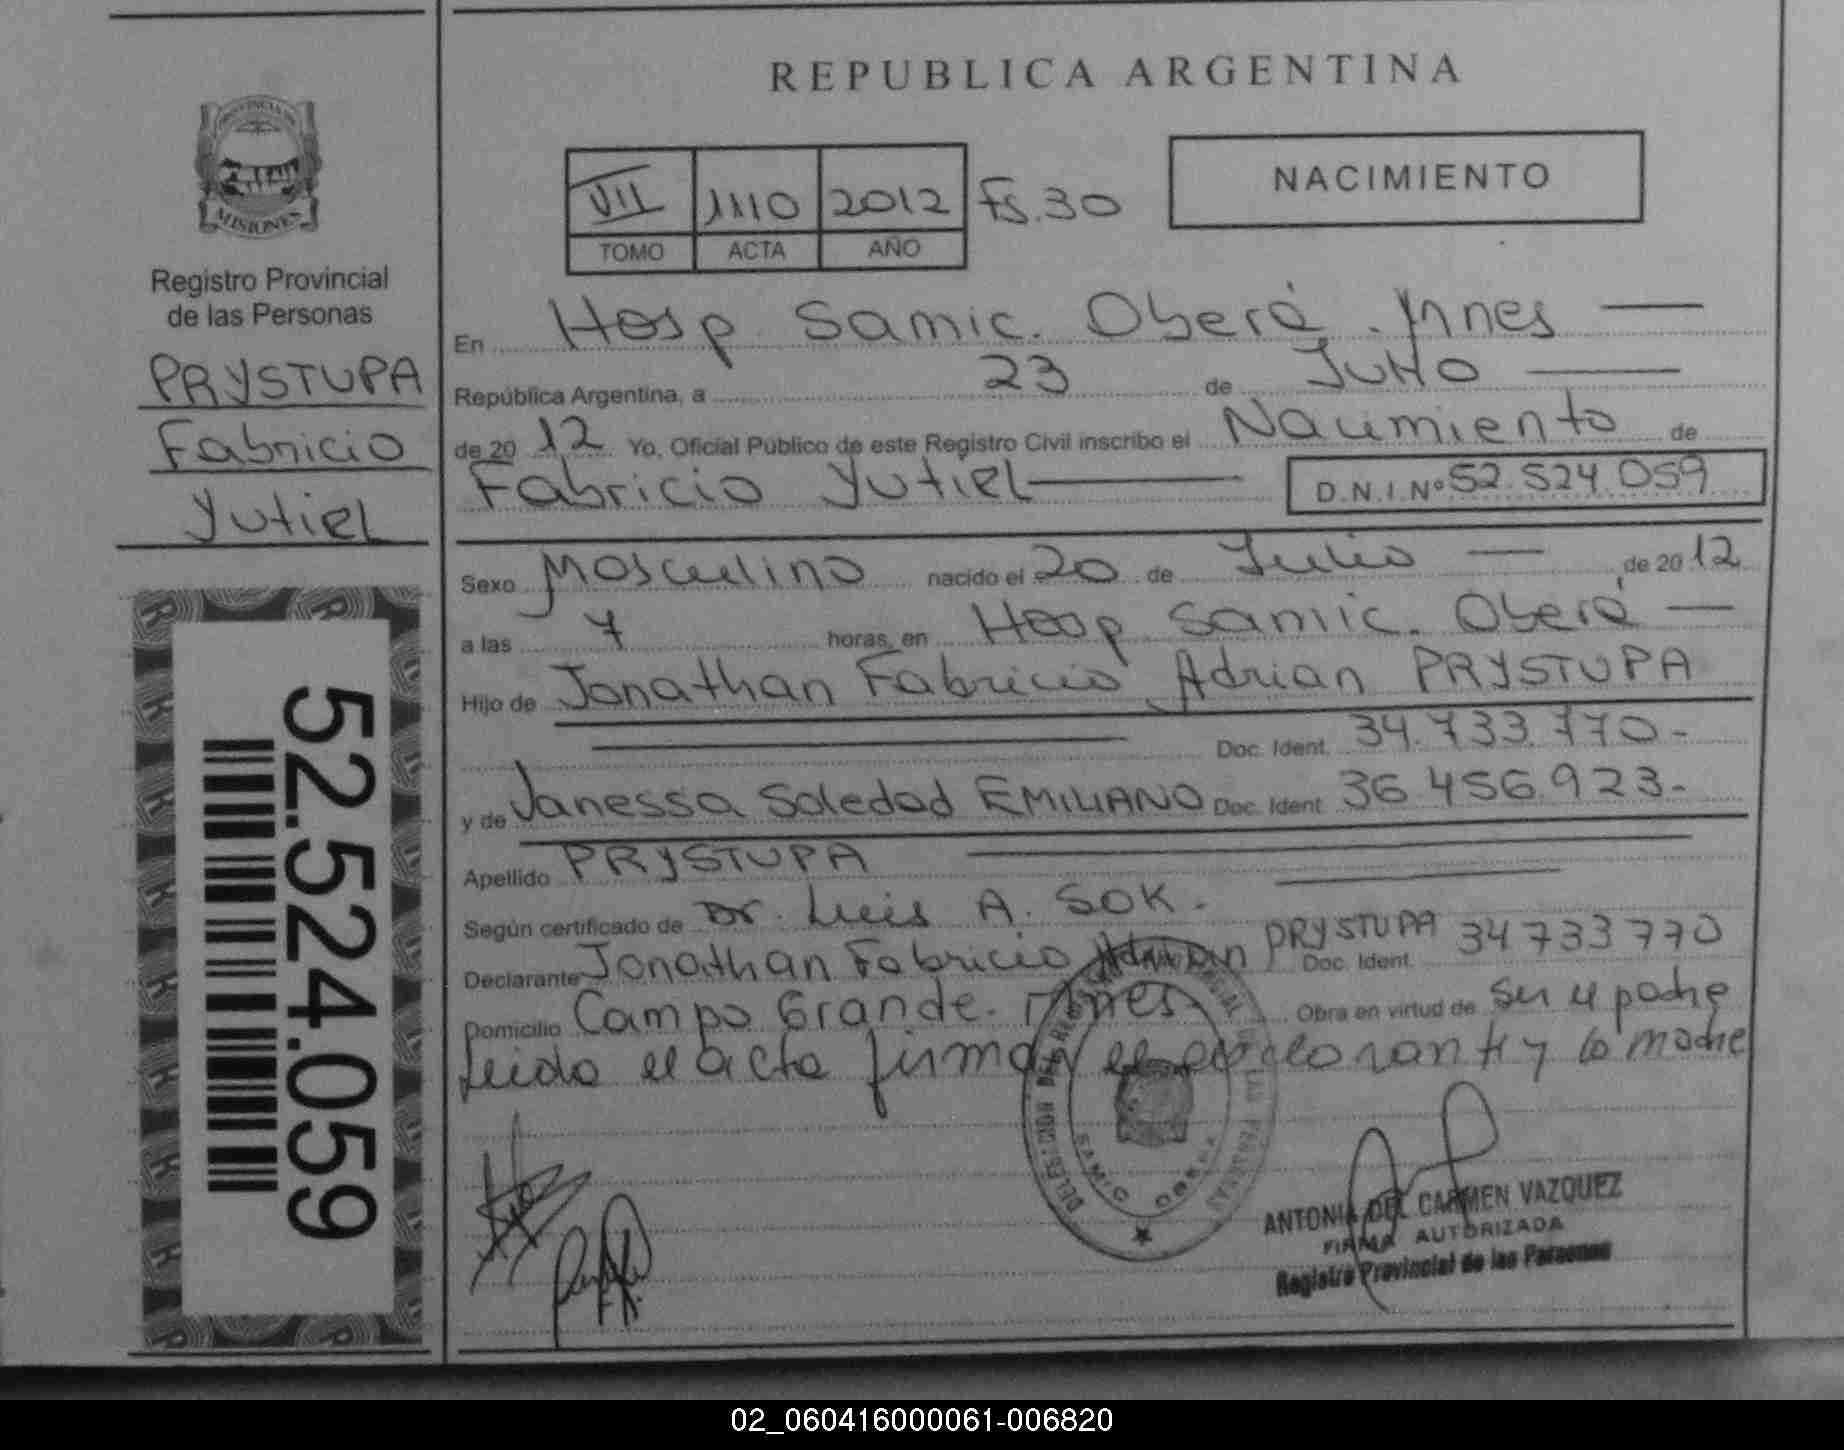 REPUBLICA ARGENTINA
PROVINCIA DE
MISIONES
Registro Provincial
de las Personas
PRYSTUPA
Fabricio
Yutiel
52.524.059
VII 1110 2012 Fs. 30
TOMO ACTA AÑO
NACIMIENTO
En Hosp Samic. Oberá. Mnes
República Argentina, a 23 de Julio
de 20 12 Yo, Oficial Público de este Registro Civil inscribo el Nacimiento de
Fabricio Yutiel D.N.I. Nº 52.524.059
Sexo Masculino nacido el 20 de Julio de 20 12
a las 7 horas, en Hosp Samic. Oberá
Hijo de Jonathan Fabricio Adrian PRYSTUPA
Doc. Ident. 34.733.770-
y de Vanessa Soledad EMILIANO Doc. Ident. 36 456 923-
Apellido PRYSTUPA
Según certificado de Dr. Luis A. SOK.
Declarante Jonathan Fabricio Adrian PRYSTUPA Doc. Ident. 34 733 770
Domicilio Campo Grande. Mnes. Obra en virtud de ser el padre
Leida el acta firman el declarante y la madre
SAMIC OBERA
ANTONIA DEL CARMEN VAZQUEZ
FIRMA AUTORIZADA
Registro Provincial de las Personas
02_060416000061-006820